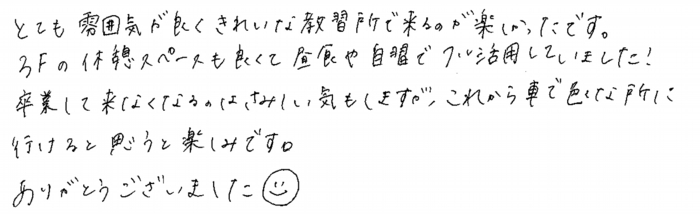 とても雰囲気が良くきれいな教習所で来るのが楽しかったです。
3Fの休憩スペースも良くて昼食や自習でフル活用していました!
卒業して来なくなるのはさみしい気もしますが、これから車で色々な所に
行けると思うと楽しみです。
ありがとうございました☺